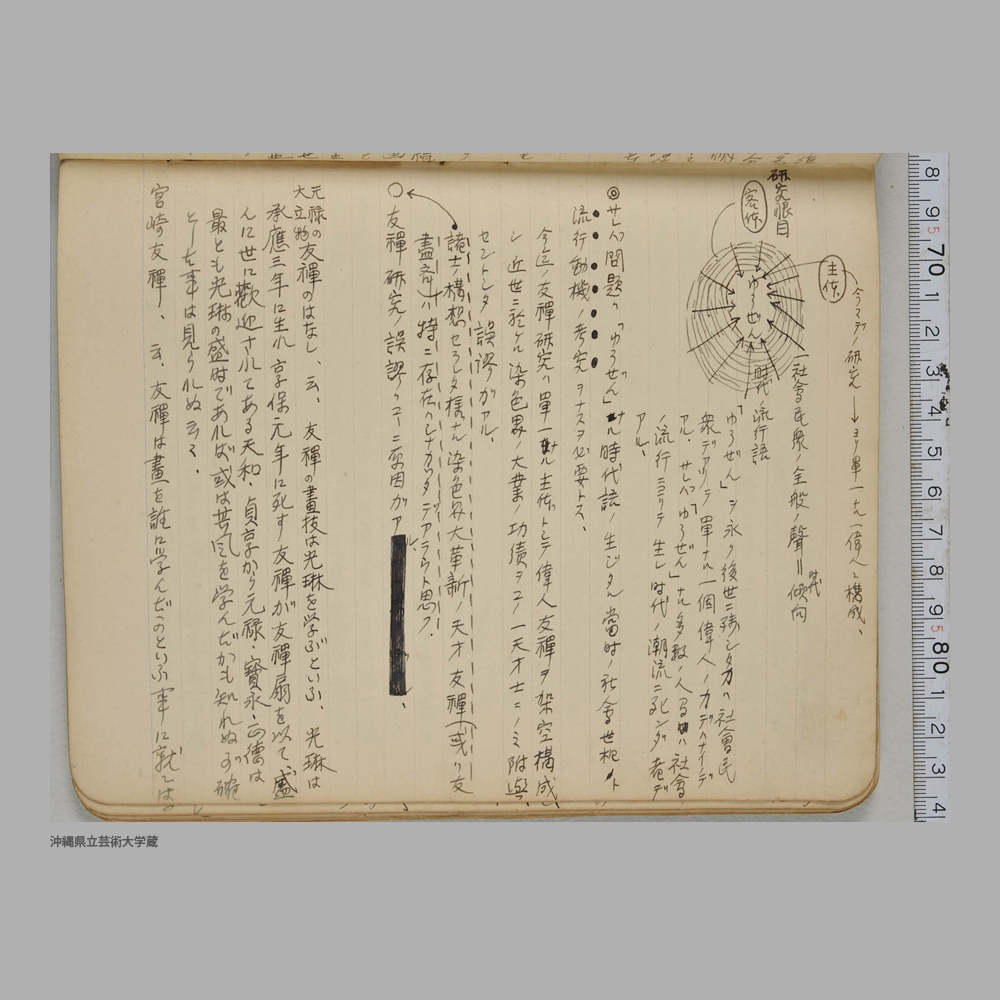 研究眼目
客体
主体
ゆうぜん
今マデノ研究→ヨリ單一九一偉人ニ構成、
一社會民衆ノ全般ノ聲=時代傾向
時代ノ流行語
「ゆうぜん」ヲ永ク後世ニ残シタカハ社會民
衆デアリテ單ナル一個偉人ノ力デハナイデ
アル、サレバ「ゆうぜん」ナル多数ノ人々ハ社會
ノ流行ニヨリテ生レ時代ノ潮流ニ
アル、
◎サレバ問題ハ「ゆうぜん」ナル時代語ノ生ジタル當時ノ社會世相ト
流行動機ノ考究ヲナスヲ必要トス、
今迄ノ友禪研究ハ單一ナル主体トシテ偉人友禪ヲ架空構成
シ近世ニ於ケル染色界ノ大業ノ功績ヲコノ一天才士ニノミ附與
セントシタ誤謬ガアル、
諸士ノ構想セラレタ様ナル染色界大革新ノ天才友禪(或ハ友
盡斎)ハ特ニ存在ハシナカッタデアラウト思フ.
○友禪研究ノ誤謬ハコヽニ原因ガアル、
元禄の
大立物友禪のはなし、云、友禪の畫技は光琳を学ぶといふ、光琳は
承應三年に生れ享保元年に死す友禪が友禪扇を以て、盛
んに世に歡迎されてゐる天和、貞享から元禄、寳永、正德は
最とも光琳の盛時であれば或は其風を学んだかも知れぬが確
とした事は見られぬ云々、
宮崎友禪、云、友禪は畫を誰に学んだのといふ事に就ては
8 9 70 1 2 3 4 5 6 7 8 9 80 1 2 3 4
沖縄県立芸術大学蔵